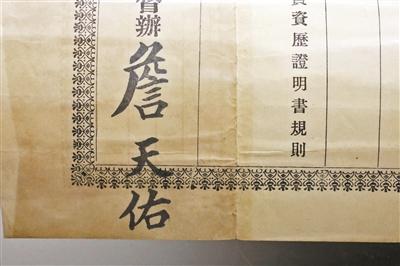 資歷證明書規則
辦詹天佑